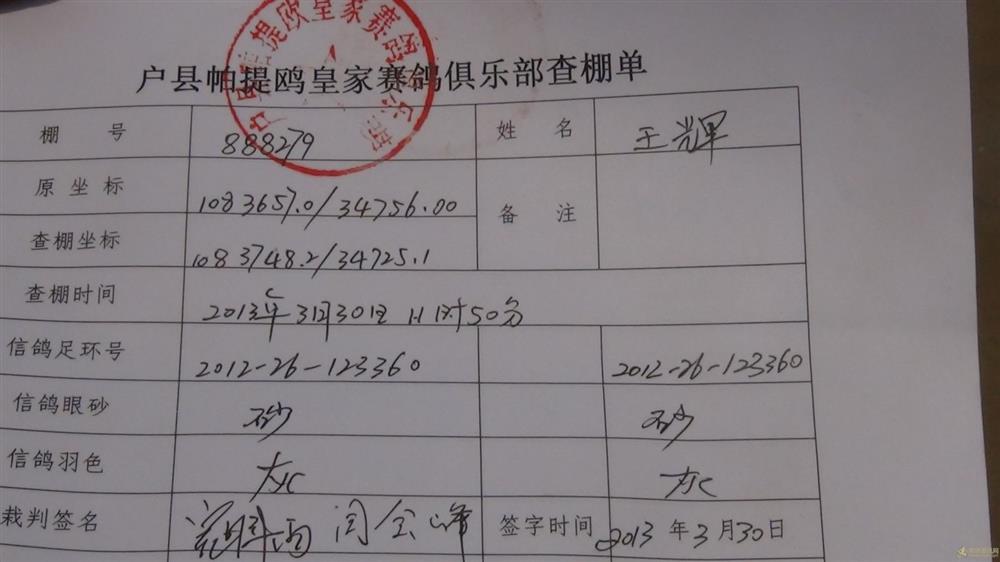 户县帕提欧皇家赛鸽俱乐部
户县帕提鸥皇家赛鸽俱乐部查棚单
棚 号 888279 姓 名 王辉
原 坐 标 1083657.0/34756.00 备 注
查棚坐标 1083748.2/34725.1
查棚时间 2013年3月30日 11时50分
信鸽足环号 2012-26-123360 2012-26-123360
信鸽眼砂 砂 砂
信鸽羽色 灰 灰
裁判签名 闫会峰 签字时间 2013 年 3 月 30 日